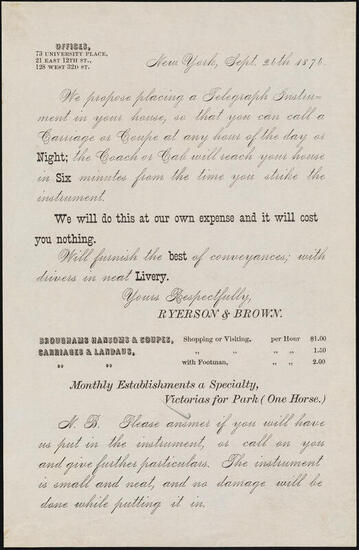 OFFICES,
73 UNIVERSITY PLACE,
21 EAST 12TH ST.,
128 WEST 32D ST.
New York, Sept. 26th 1876.
We propose placing a Telegraph Instru-
ment in your house, so that you can call a
Carriage or Coupe at any hour of the day or
Night; the Coach or Cab will reach your house
in Six minutes from the time you strike the
instrument.
We will do this at our own expense and it will cost
you nothing.
Will furnish the best of conveyances; with
drivers in neat Livery.
Yours Respectfully,
RYERSON & BROWN.
BROUGHAMS HANSOMS & COUPES, Shopping or Visiting, per Hour $1.00
CARRIAGES & LANDAUS, " " " " 1.50
" " with Footman, " " 2.00
Monthly Establishments a Specialty,
Victorias for Park (One Horse.)
N. B. Please answer if you will have
us put in the instrument, or call on you
and give further particulars. The instrument
is small and neat, and no damage will be
done while putting it in.